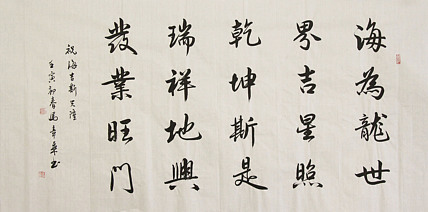 海為龍世
界吉星照
乾坤斯是
瑞祥地興
發業旺門
祝海吉斯兴隆
壬寅初春馬书